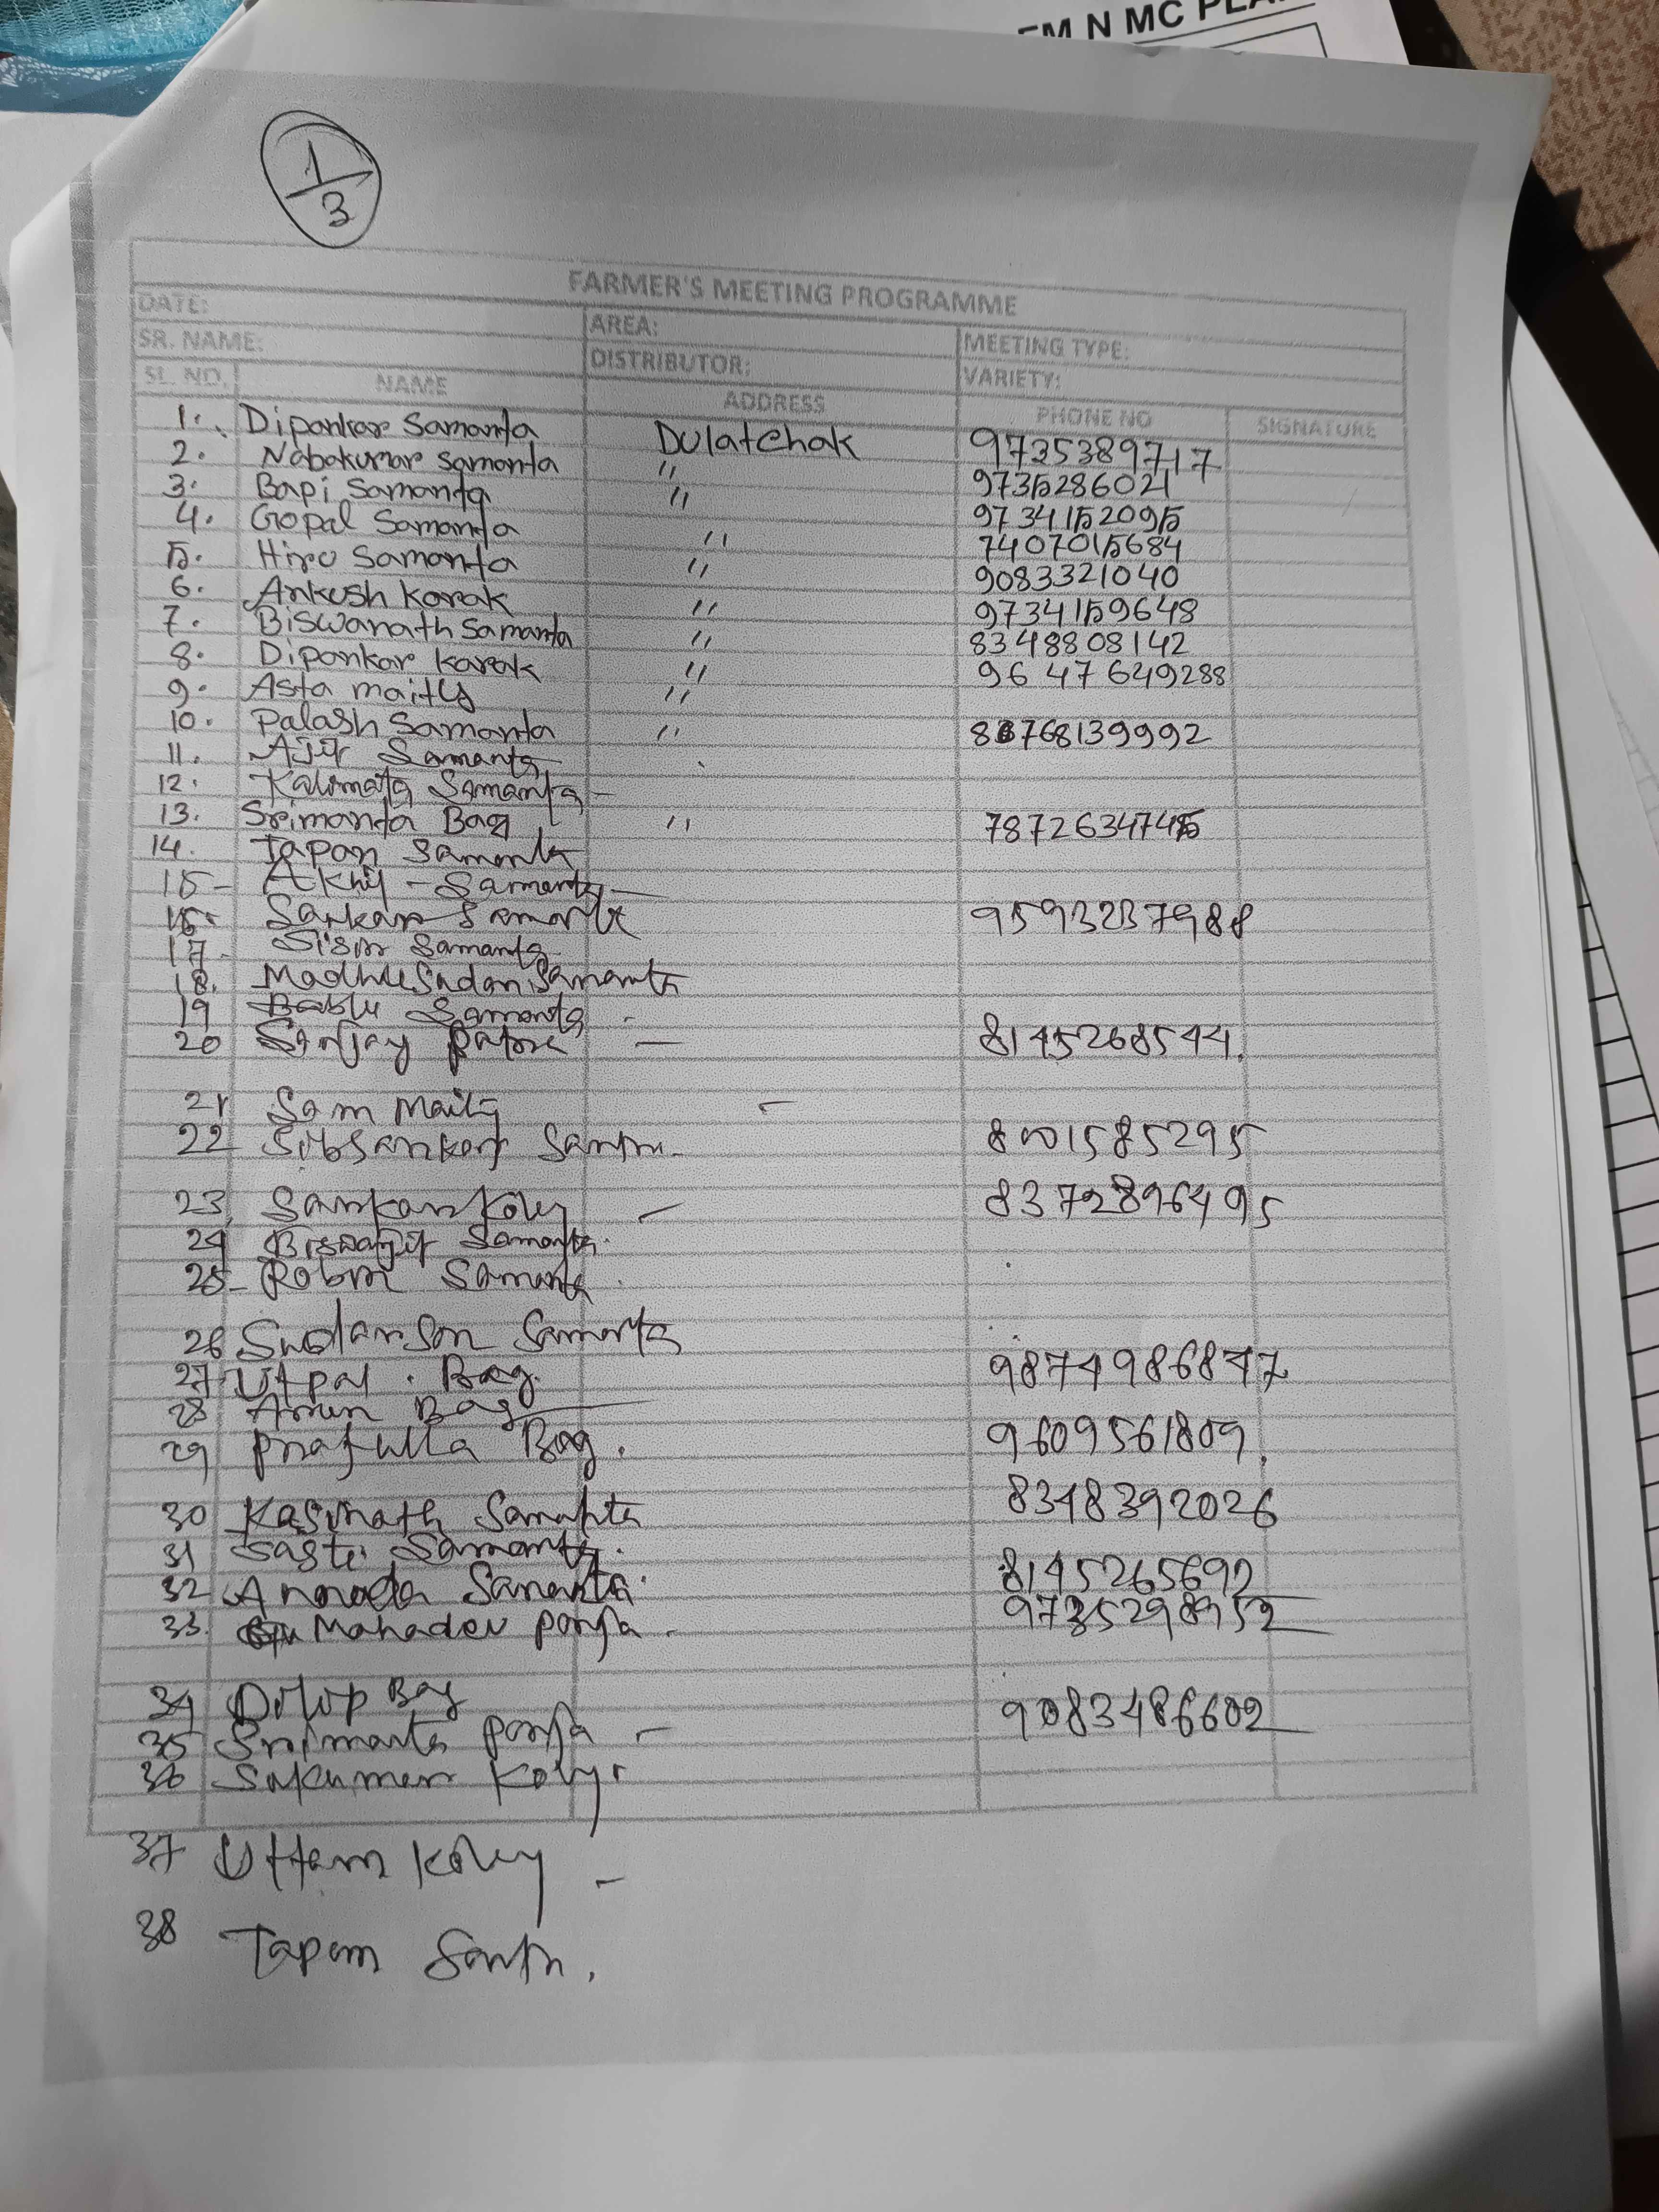 EM N MC PLA
1/3
FARMER'S MEETING PROGRAMME
DATE: AREA: MEETING TYPE:
SR. NAME: DISTRIBUTOR: VARIETY:
SL. NO. NAME ADDRESS PHONE NO SIGNATURE
1. Dipankar Samanta Dulatchak 9735389717
2. Nabakumar Samanta " 9735286021
3. Bapi Samanta " 9734152095
4. Gopal Samanta " 7407015684
5. Hiru Samanta " 9083321040
6. Ankush Karak " 9734159648
7. Biswanath Samanta " 8348808142
8. Dipankar Karak " 9647649288
9. Asta maity "
10. Palash Samanta " 8768139992
11. Ajit Samanta
12. Kalimata Samanta -
13. Srimanta Bag " 7872634745
14. Tapan Samanta
15 - Akhil - Samanta
16. Sankar Samanta 9593237988
17 - Sisir Samanta
18. Madhu Sudan Samanta
19 Bablu Samanta -
20 Sanjay Patra - 8145268544.
21 Som Maity -
22 Sibsankar Santra - 8001585295
23, Sankar Koley - 8372896495
24 Biswajit Samanta.
25 - Robin Samanta.
26 Sudarson Samanta
27 Utpal . Bag. 9874986847
28 Arun Bag
29 Prafulla Bag. 9609561809.
30 Kasinath Samanta 8348392026
31 Sasti Samanta.
32 Annada Samanta. 8145265692
33. Mahadev Porja. 9735298952
34 Dilip Bag
35 Srimanta Porja - 9083486602
36 Sukumar Koley.
37 Uttam Koley -
38 Tapan Santra.